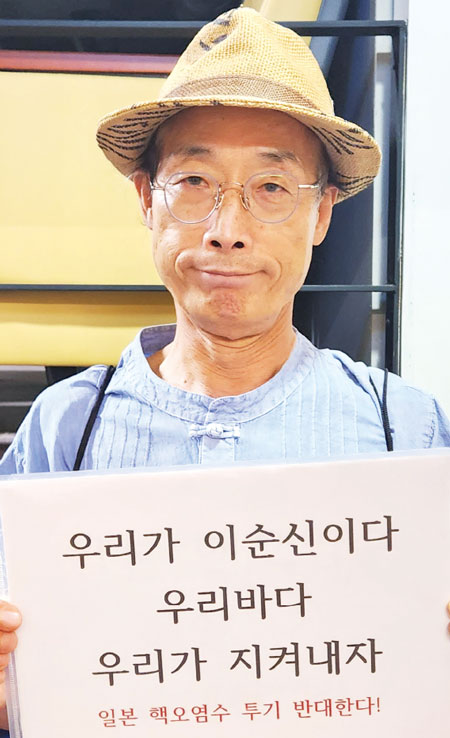 우리가 이순신이다
우리바다
우리가 지켜내자
일본 핵오염수 투기 반대한다!